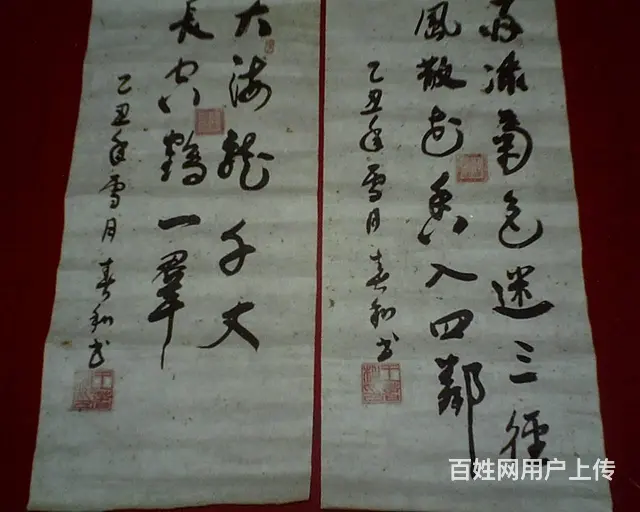 雨添菊色迷三徑
風散花香入四鄰
乙丑年雪月春和书
大海龍千丈
長空鶴一羣
乙丑年雪月春和书
百姓网用户上传